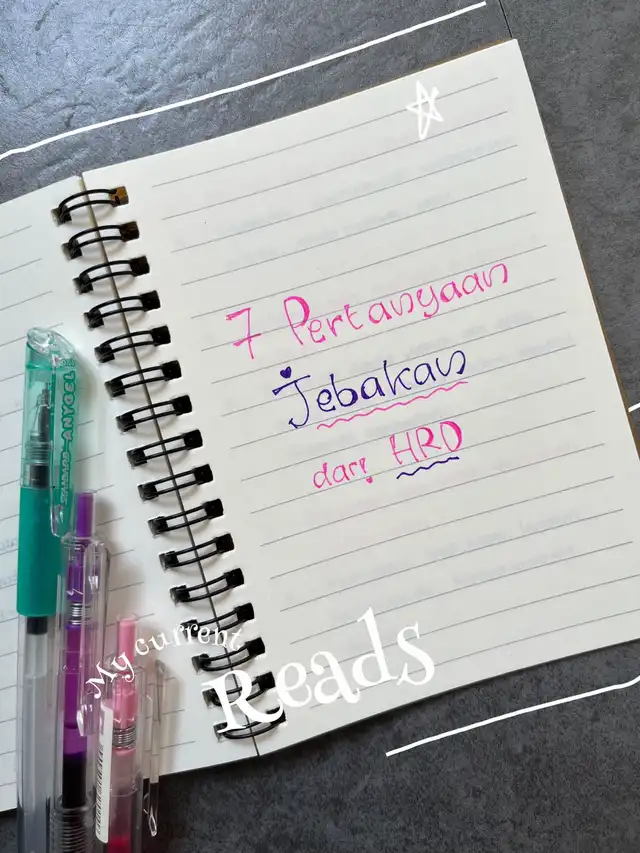 7 Pertanyaan
Jebakan
dari HRD
My current
Reads